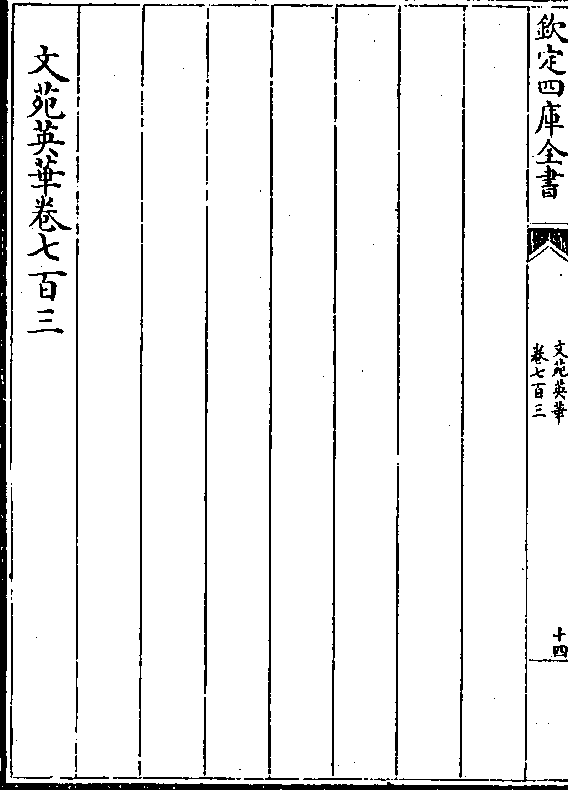 欽定四庫全書
文苑英華
卷七百三
十四
文苑英華卷七百三